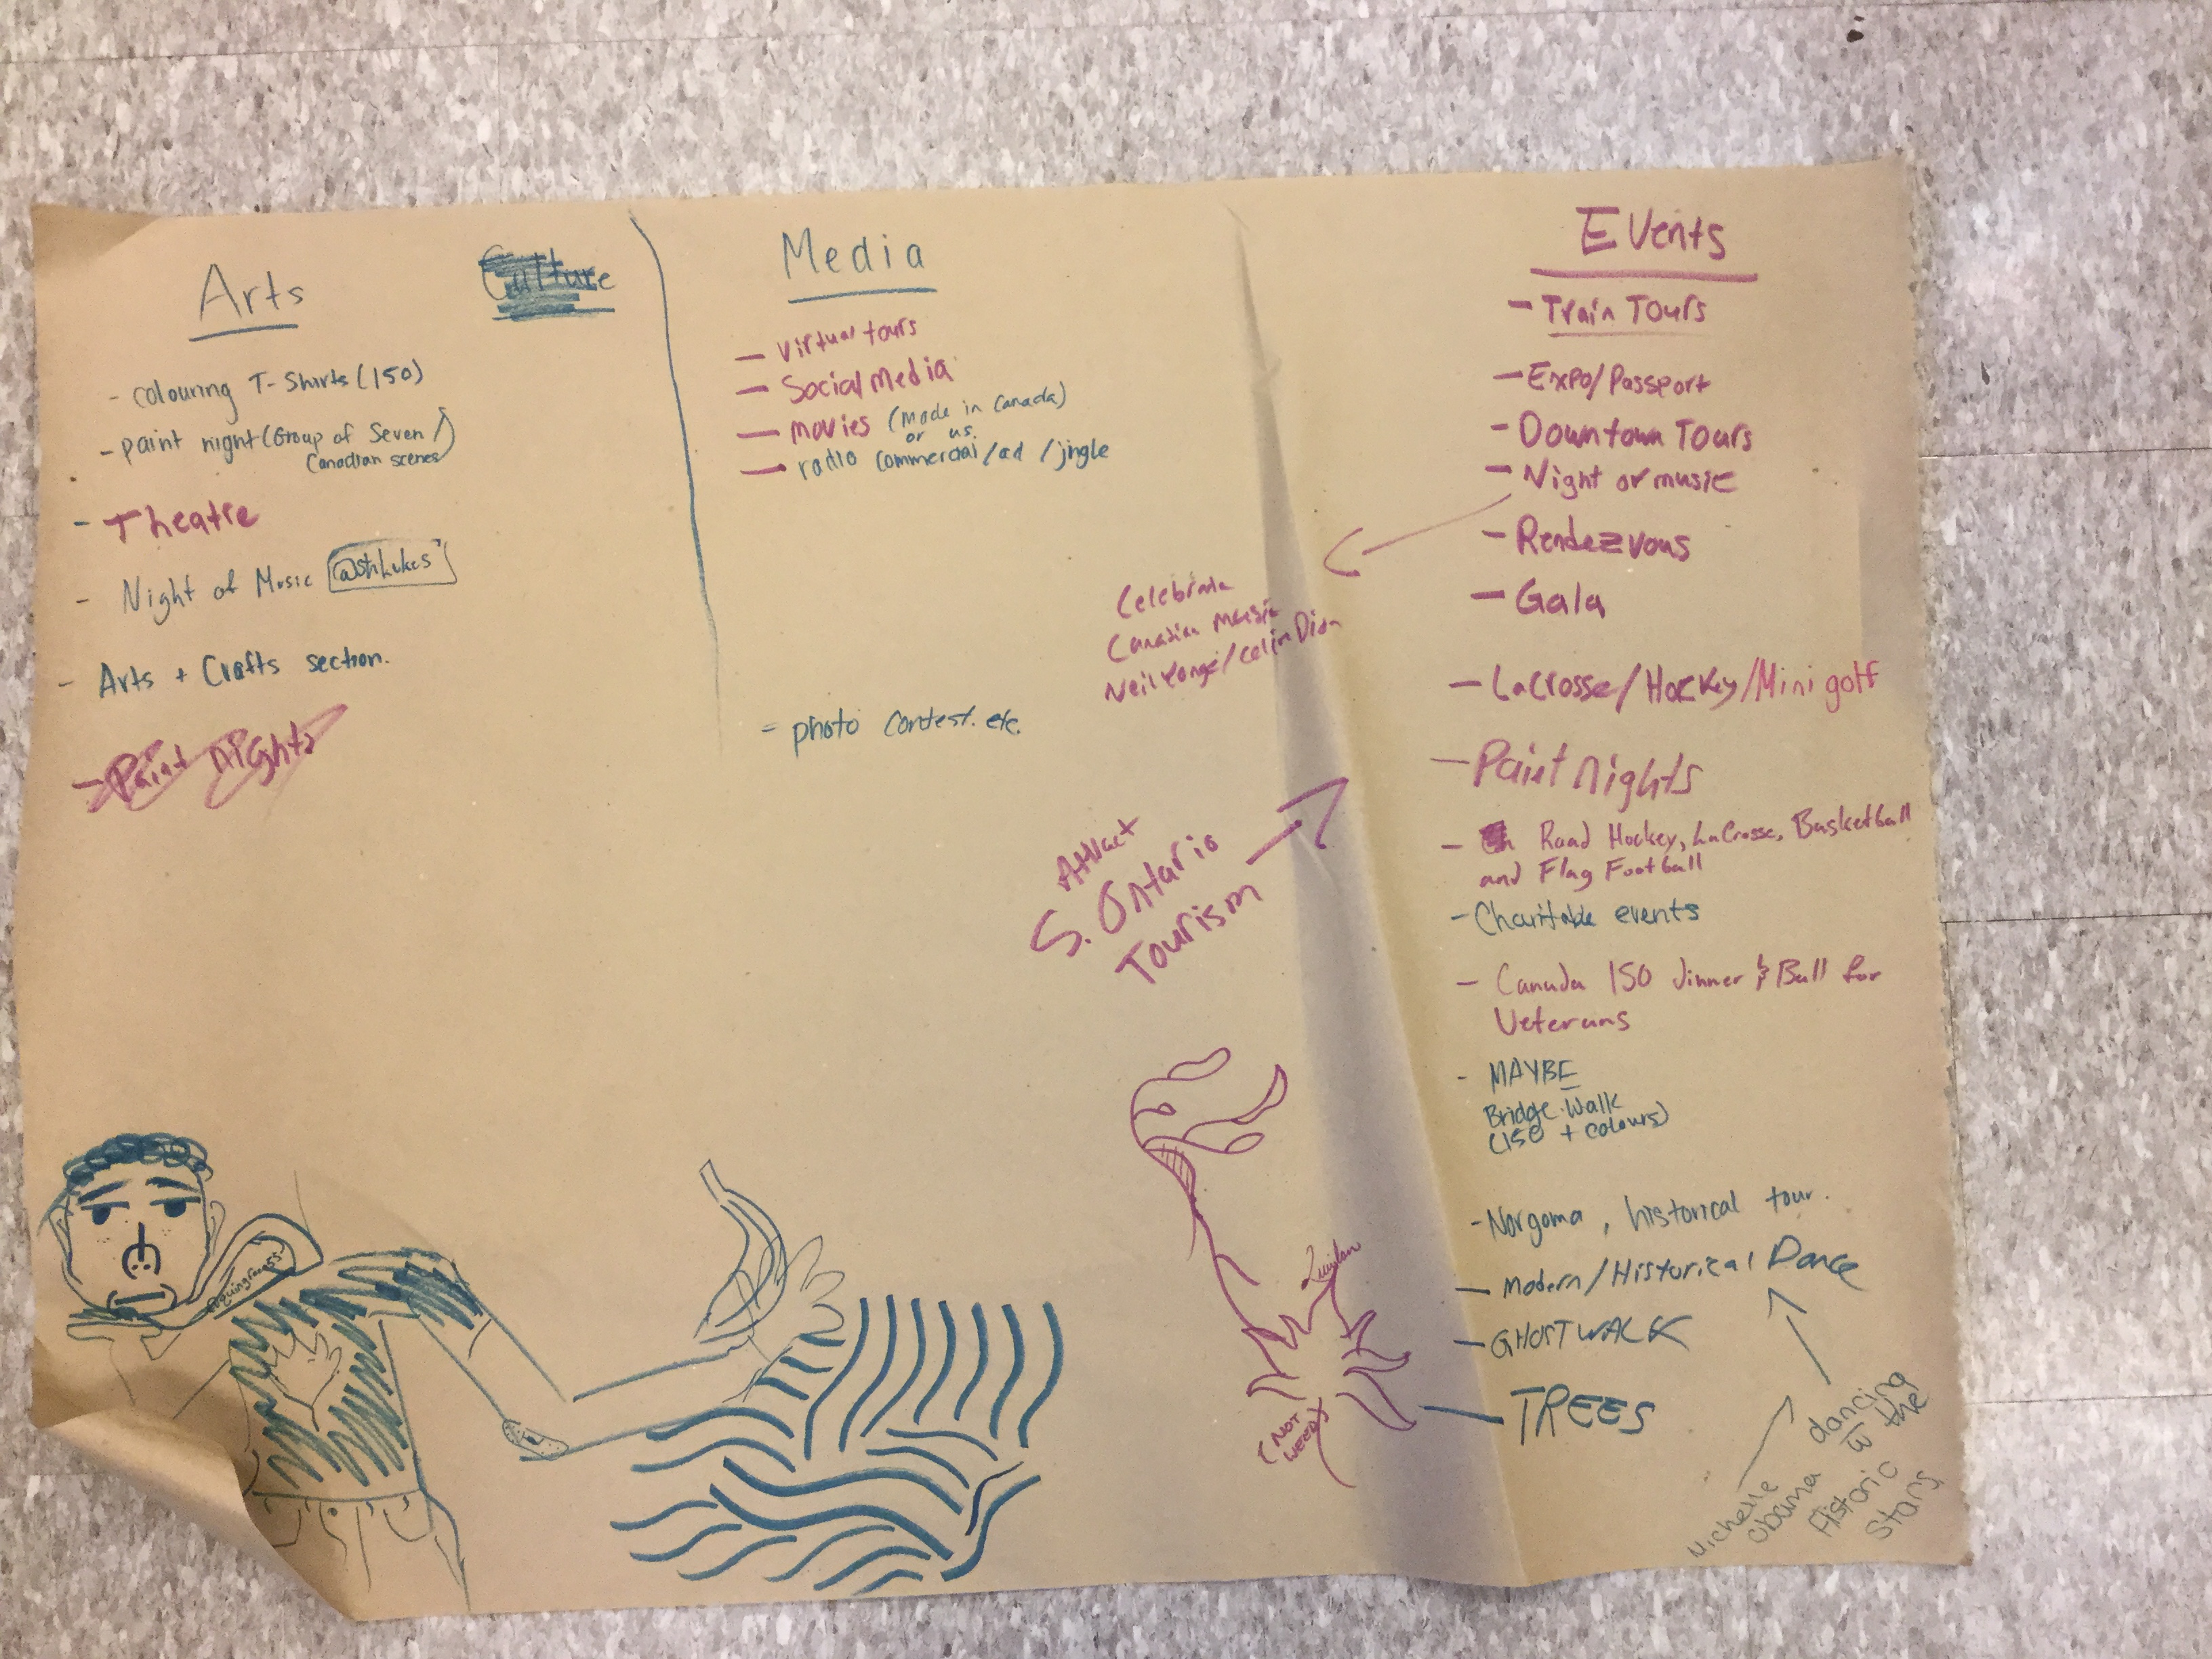 Arts
Culture
- colouring T-Shirts (150)
- paint night (Group of Seven /
Canadian scenes)
- Theatre
- Night of Music @st.Lukes
- Arts + Crafts section.
- Paint nights
Media
- Virtual tours
- Social Media
- movies (Made in Canada)
or us.
- radio commercial/ad/jingle
= photo contest. etc.
Celebrate
Canadian Music
Neil Yonge/Celin Dion
Attract
S. Ontario
Tourism
Events
- Train Tours
- Expo/Passport
- Downtown Tours
- Night of music
- Rendezvous
- Gala
- Lacrosse/Hockey/Mini golf
- Paint nights
- Road Hockey, LaCrosse, Basketball
and Flag Football
- Charitable events
- Canada 150 dinner & Ball for
Veterans
- MAYBE
Bridge Walk
(150 + colours)
- Norgoma, historical tour.
- Modern/Historical Dance
- GHOST WALK
- TREES
(NOT
WEED)
Michelle
Obama
dancing
w the
Historic
Stars